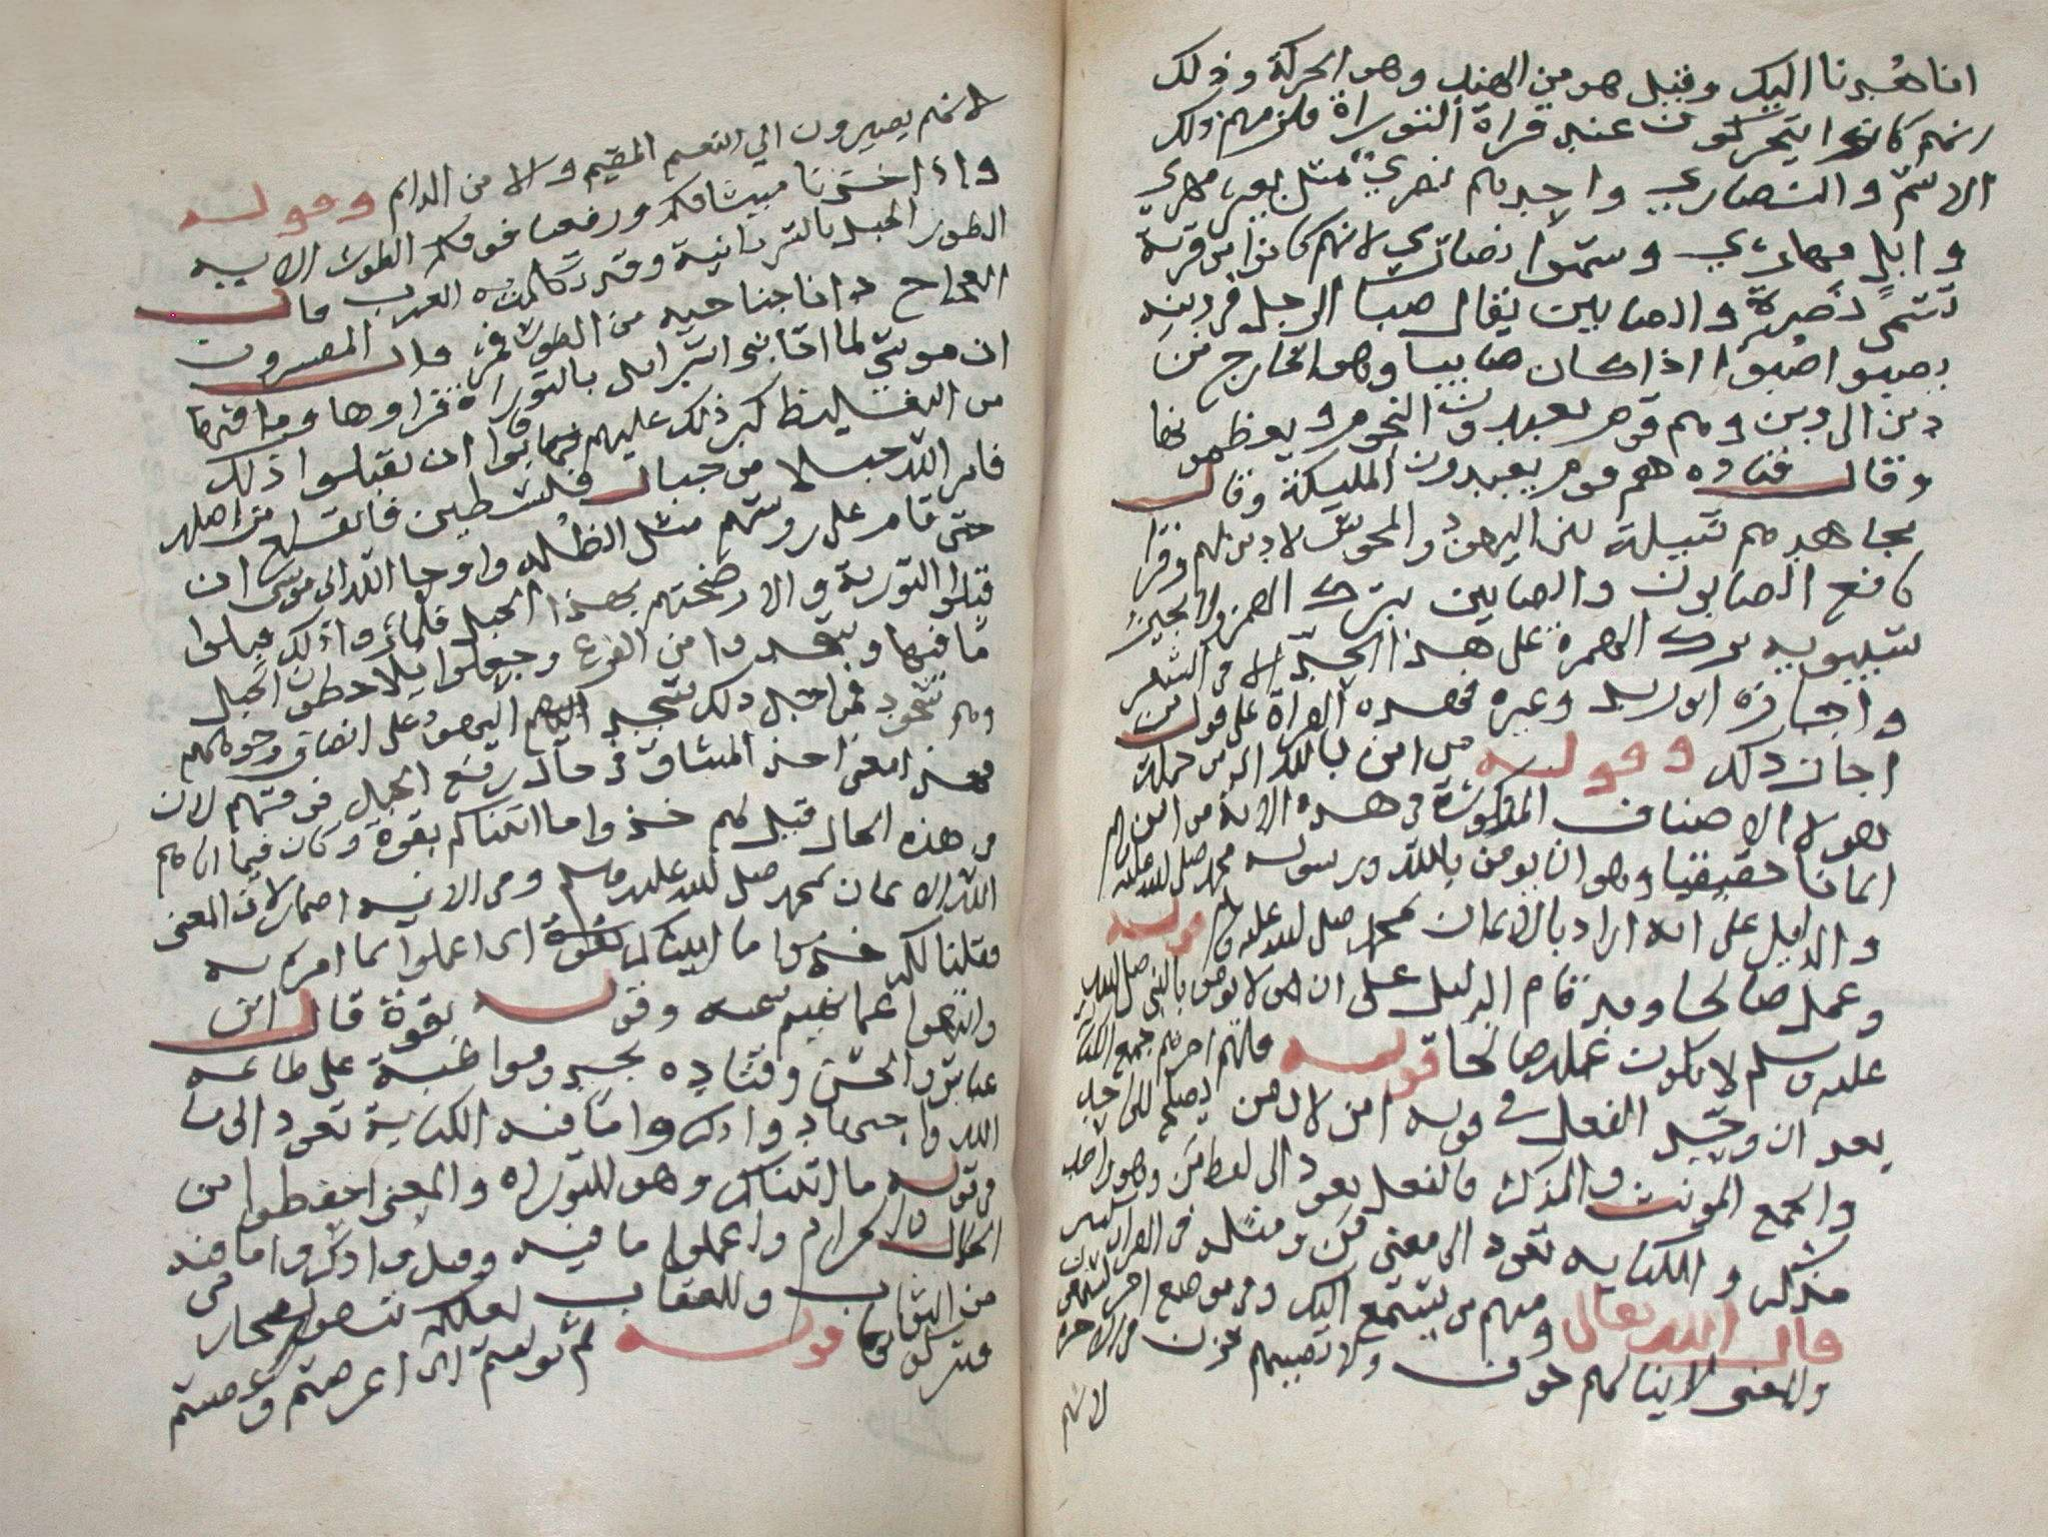 انا هدنا اليك وقيل هو من الهند وهو الحركة وذلك
انهم كانوا يتحركون عند قراة التوراة فلزمهم ذلك
الاسم والنصاري واحدهم نصري مثل بعير مهري
وابل مهاري وسموا نصاري لانهم كانوا من قرية
تسمى نصرة والصابين يقال صبا الرجل في دينه
يصبوا صبوا اذا كان صابيا وهو الخارج من
دين الى دين وهم قوم يعبدون النجوم ويعظمونها
وقال قتاده هم قوم يعبدون المليكة وقال
مجاهد هم قبيلة بين اليهود والمجوس لا دين لهم وقرا
نافع الصابون والصابين بترك الهمز ولا يجيز
سيبويه ترك الهمزة على هذا الحد الا في الشعر
واجازه ابو زيد وغيره فهذه القراة على قول من
اجاز ذلك وقوله من امن بالله اي من جملة
هولا الاصناف المذكورة في هذه الاية من امن
ايمانا حقيقيا وهو ان يومن بالله ورسوله محمد صلى الله عليه
والدليل على انه اراد بالايمان بمحمد صلى الله عليه قوله
وعمل صالحا وقد قام الدليل على ان من لا يومن بالنبي صلى الله
عليه وسلم لا يكون عمله صالحا قوله فلهم اجرهم جمع الكناية
بعد ان وحد الفعل في قوله امن لان من يصلح للواحد
والجمع المونث والمذكر فالفعل يعود الى لفظ من وهو واحد
مذكر والكنايه تعود الى معنى من ومثله في القران كثير
قال الله تعالى ومنهم من يستمع اليك وفي موضع اخر يستمعون
والمعنى لا ينالهم خوف ولا يصيبهم حزن في الاخرة
لانهم
لانهم يصيرون الي النعيم المقيم والامن الدايم وقوله
واذ اخذنا ميثاقكم ورفعنا فوقكم الطور الايه
الطور الجبل بالسريانية وقد تكلمت به العرب قال
العجاج دانا جناحيه من الطور فمر وقال المفسرون
ان موسى لما اتا بني اسرائل بالتوراة فقراوها وما فيها
من التغليظ كبر ذلك عليهم فابوا ان يقبلوا ذلك
فامر الله جبلا من جبال فلسطين فانقلع من اصله
حتى قام على روسهم مثل الظله واوحا الله الى موسى ان
قبلوا التورية والا رضختهم بهذا الجبل فلما راوا ذلك قبلوا
ما فيها وسجدوا من الفزع وجعلوا يلاحظون الجبل
وهم سجود فمن اجل ذلك تسجد اليهود على انصاف وجوههم
فهذا معنى اخذ الميثاق في حال رفع الجبل فوقهم لان
في هذه الحال قيل لهم خذوا ما اتيناكم بقوة وكان فيما اتاهم
الله الايمان بمحمد صلى الله عليه وسلم وفي الاية اضمار لان المعنى
وقلنا لكم خذوا ما اتيناكم بقوة اى اعملوا بما امرتم به
وانتهوا عما نهيتم عنه وقوله بقوة قال ابن
عباس والحسن وقتاده بجد ومواظبة على طاعة
الله واجتهاد واذكروا ما فيه الكناية تعود الى ما
في قوله ما اتيناكم وهو التوراه والمعنى احفظوا من
الحلال والحرام واعملوا ما فيه وقيل واذكروا ما فيه
من الثواب والعقاب لعلكم تتقون
قوله ثم توليتم اى اعرضتم وعصيتم